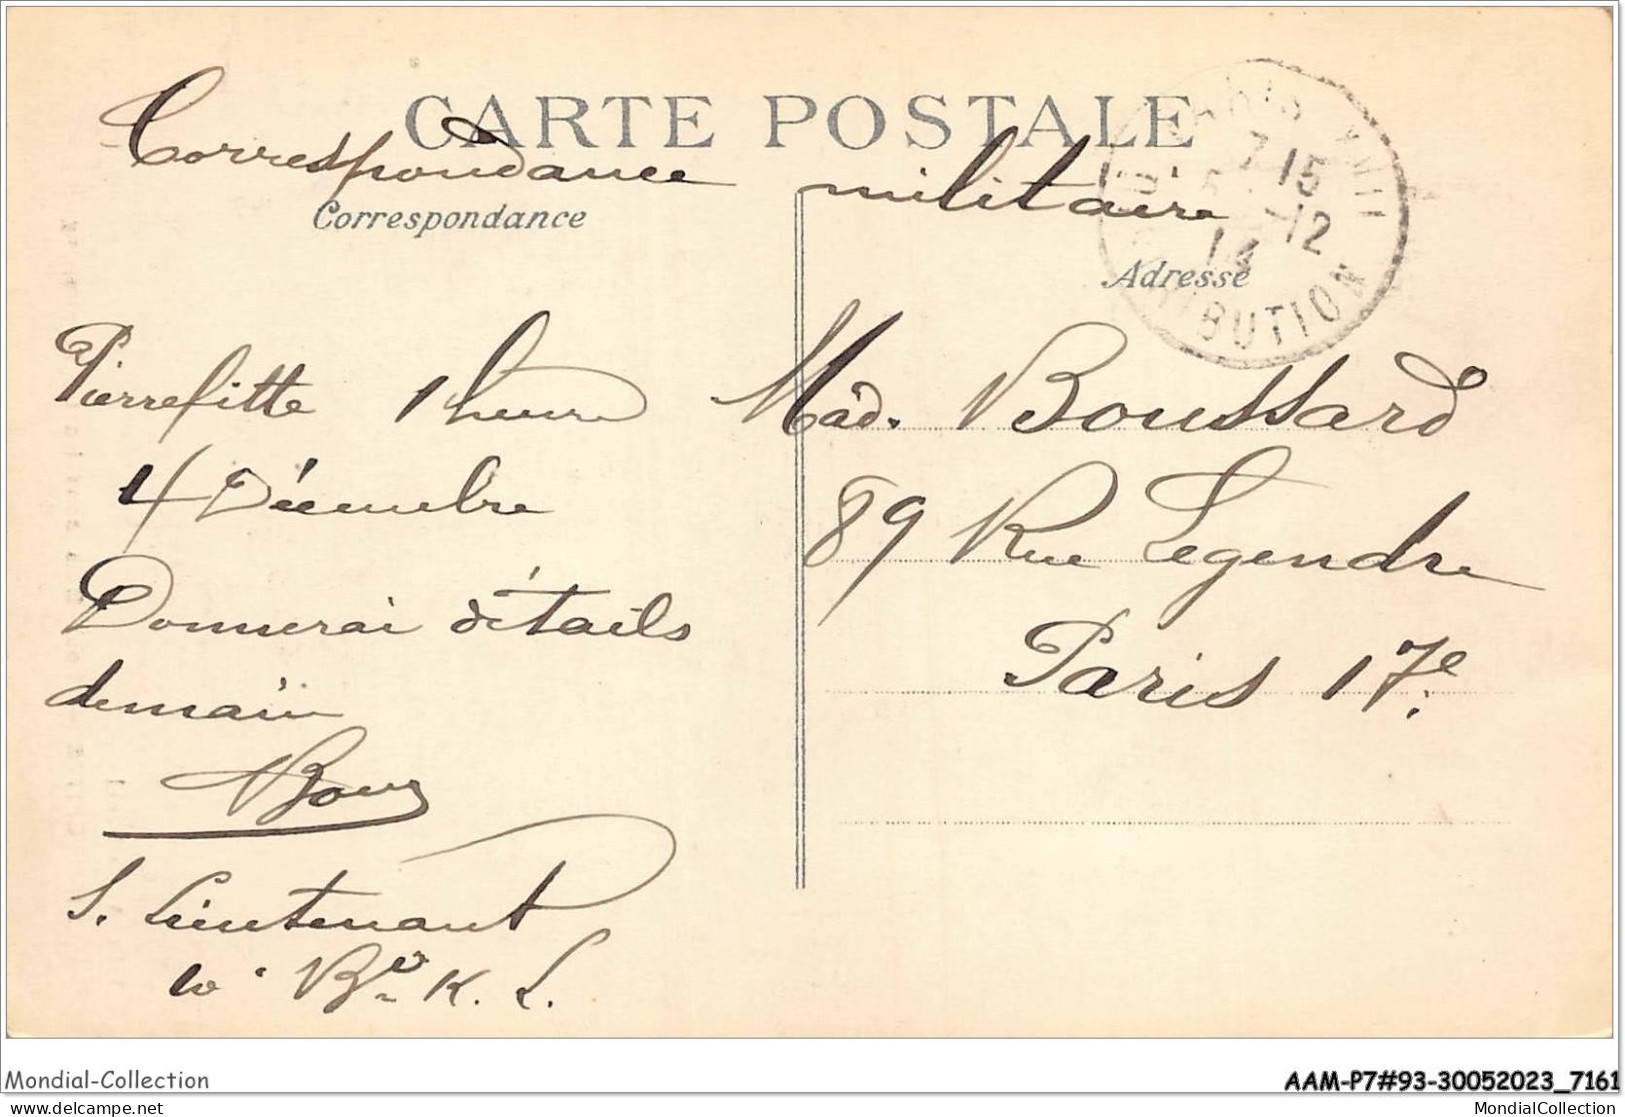 CARTE POSTALE
Correspondance militaire
Correspondance
Adresse
7 15
5 -12
14
DISTRIBUTION
Pierrefitte 1 heure
4 Décembre
Donnerai détails
demain
S. Lieutenant
K. L.
Mad. Boussard
89 Rue Legendre
Paris 17e
Mondial-Collection
AAM-P7#93-30052023_7161
www.delcampe.net
MondialCollection